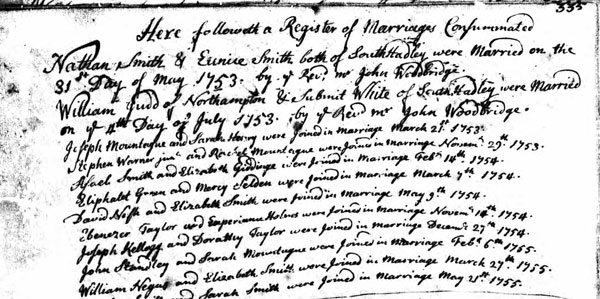 335
Here followeth a Register of Marriages Consummated
Nathan Smith & Eunice Smith both of South Hadley were Married on the
31st Day of May 1753. by ye Revd mr John Woodbridge.
William Judd of Northampton & Submit White of South Hadley were Married
on ye 4th Day of July 1753. by ye Revd mr John Woodbridge.
Joseph Mountague and Sarah Henry were Joined in marriage March 21st 1753.
Stephen Warner junr and Rachel Mountague were Joined in marriage Novemr 29th 1753.
Smith and Elizabeth Giddinge were Joined in Marriage Febr 14th 1754.
Eliphalet Green and Mercy Selden were Joined in Marriage March 7th 1754.
David Nash and Elizabeth Smith were Joined in marriage May 9th 1754.
Ebenezer Taylor and Experience Holms were Joined in marriage Novemr 14th 1754.
Joseph Kellogg and Dorathy Taylor were Joined in marriage Decemr 27th 1754.
John Standley and Sarah Mountague were Joined in Marriage Febr 6th 1755.
William Negus and Elizabeth Smith were Joined in Marriage March 27th 1755.
and Sarah Smith were Joined in Marriage May 1755.